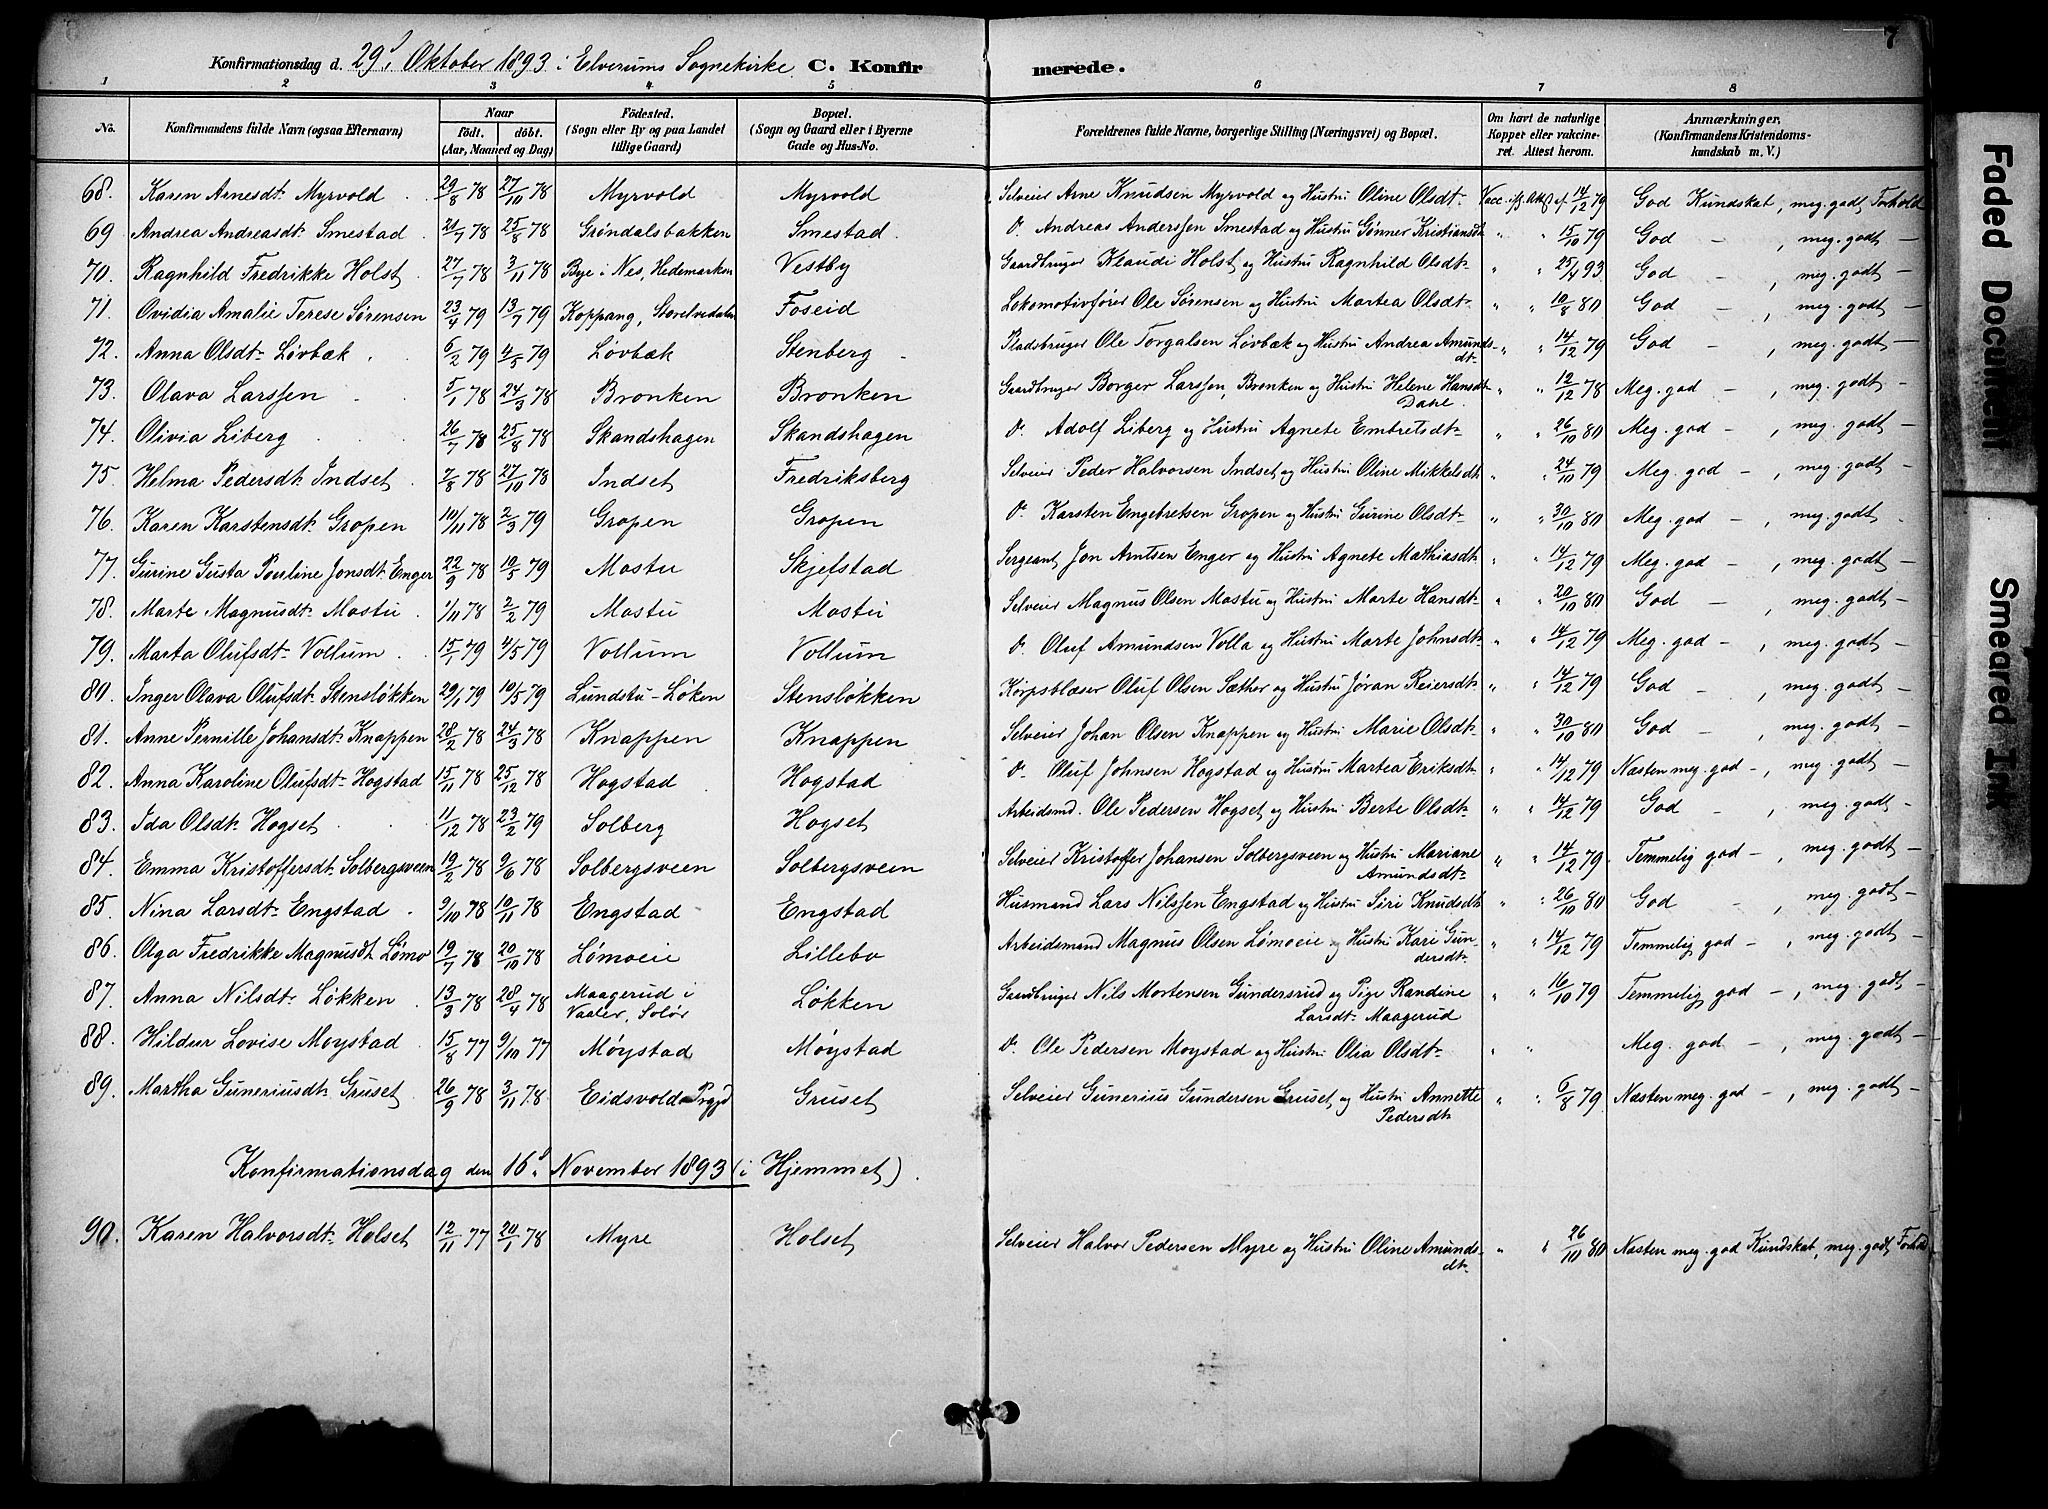 7
Konfirmationsdag d. 29d Oktober 1893 i Elverums Sognekirke. C. Konfirmerede.
1 2 3 4 5 6 7 8
No. Konfirmandens fulde Navn (ogsaa Efternavn) Naar födt. döbt. (Aar, Maaned og Dag) Födested. (Sogn eller By og paa Landet tillige Gaard) Bopæl. (Sogn og Gaard eller i Byerne Gade og Hus-No. Forældrenes fulde Navne, borgerlige Stilling (Næringsvei) og Bopæl. Om havt de naturlige Kopper eller vakcineret. Attest herom. Anmærkninger. (Konfirmandens Kristendomskundskab m. V.)
68. Karen Arnesdt. Myrvold 29/8 78 27/10 78 Myrvold Myrvold Selveier Arne Knudsen Myrvold og Hustru Oline Olsdt. Vacc. 14/12 79 God Kundskab, meg. godt Forhold
69 Andrea Andreasdt. Smestad 20/7 78 25/8 78 Gröndalsbakken Smestad Do Andreas Anderssen Smestad og Hustru Gønner Kristiansdt " " 15/10 79 God — , meg. godt —
70. Ragnhild Fredrikke Holst 27/7 78 3/11 78 Bye i Nes, Hedemarken Vestby Gaardbruger Klaudi Holst og Hustru Ragnhild Olsdt. " " 25/4 93 God — , meg. godt —
71. Ovidia Amalie Terese Sørensen 23/4 79 13/7 79 Koppang, Storelvedalen Foseid Lokomotivfører Ole Sørensen og Hustru Martea Olsdt. " " 10/8 80 God — , meg. godt —
72. Anna Olsdt. Løvbæk 6/2 79 4/5 79 Løvbæk Stenberg Pladsbruger Ole Torgalsen Lövbæk og Hustru Andrea Amundsdt. " " 14/12 79 God — , meg. godt —
73. Olava Larssen 5/1 78 24/3 78 Bronken Bronken Gaardbruger Borger Larssen, Bronken og Hustru Helene Hansdt. Dahl. " " 12/12 78 Meg. god — , meg. godt —
74. Olivia Liberg 26/7 78 25/8 78 Skandshagen Skandshagen Do Adolf Liberg og Hustru Agnete Embretsdt. " " 26/10 80 Meg. god — , meg. godt —
75. Helma Pedersdt. Indset 2/8 78 27/10 78 Indset Fredriksberg Selveier Peder Halvorsen Indset og Hustru Oline Mikkelsdt. " " 24/10 79 Meg. god — , meg. godt —
76. Karen Karstensdt. Gropen 10/11 78 2/3 79 Gropen Gropen Do Karsten Engebretsen Gropen og Hustru Gurine Olsdt. " " 30/10 80 Meg. god — , meg. godt
77. Gurine Gusta Pauline Jonsdt. Enger 22/9 78 10/5 79 Mostu Skjefstad Sergeant Jon Arntsen Enger og Hustru Agnete Mathiasdt. " " 14/12 79 Meg. god — , meg. godt —
78. Marte Magnusdt. Mostu 1/11 78 2/2 79 Mostu Mostu Selveier Magnus Olsen Mostu og Hustru Marte Hansdt. " " 20/10 80 God — , meg. godt —
79. Marta Olufsdt. Vollum 15/1 79 4/5 79 Vollum Vollum Do Oluf Amundsen Volla og Hustru Marte Johnsdt. " " 14/12 79 Meg. god — , meg. godt —
80. Inger Olava Olufsdt. Stensløkken 29/1 79 10/5 79 Lundstu-Løken Stensløkken Korpsblæser Oluf Olsen Sæther og Hustru Jøran Reiersdt. " " 14/12 79 God — , meg. godt —
81. Anne Pernille Johansdt. Knappen 28/2 78 24/3 78 Knappen Knappen Selveier Johan Olsen Knappen og Hustru Marie Olsdt. " " 30/10 80 God — , meg. godt —
82. Anna Karoline Olufsdt. Hogstad 15/11 78 25/12 78 Hogstad Hogstad Do Oluf Johnsen Hogstad og Hustru Martea Eriksdt. " " 14/12 79 Næsten meg. god — , meg. godt —
83. Ida Olsdt. Hogset 11/12 78 23/2 79 Solberg Hogset Arbeidsmd. Ole Pedersen Hogset og Hustru Berte Olsdt. " " 14/12 79 God — , meg. godt —
84. Emma Kristoffersdt. Solbergsveen 19/2 78 9/6 78 Solbergsveen Solbergsveen Selveier Kristoffer Johansen Solbergsveen og Hustru Mariane Amundsdt. " " 14/12 79 Temmelig god — , meg. godt —
85. Nina Larsdt. Engstad 9/10 78 10/11 78 Engstad Engstad Husmand Lars Nilssen Engstad og Hustru Siri Knudsdt. " " 26/10 80 God — , meg. godt —
86. Olga Fredrikke Magnusdt. Lømo 19/7 78 20/10 78 Lømoeie Lillebo Arbeidsmand Magnus Olsen Lømoeie og Hustru Kari Gundersdt. " " 14/12 79 Temmelig god — , meg. godt —
87. Anna Nilsdt. Løkken 13/3 78 28/4 78 Maagerud i Vaaler, Solør Løkken Gaardbruger Nils Mortensen Gundersrud og Pige Randine Larsdt. Maagerud " " 16/10 79 Temmelig god — , meg. godt —
88. Hildur Lovise Moystad 15/8 77 9/10 77 Møystad Møystad Do Ole Pedersen Moystad og Hustru Olia Olsdt. " " Meg. god — , meg. godt —
89. Martha Guneriusdt. Gruset 26/9 78 3/11 78 Eidsvolds Prgjd Gruset Selveier Gunerius Gundersen Gruset og Hustru Annette Pedersdt. " " 6/8 79 Næsten meg. god — , meg. godt —
Konfirmationsdag den 16d November 1893 (i Hjemmet).
90. Karen Halvorsdt. Holset 12/11 77 20/1 78 Myre Holset Selveier Halvor Pedersen Myre og Hustru Oline Amundsdt. " " 26/10 80 Næsten meg. god Kundskab, meg. godt Forhold
Faded Document
Smeared Ink